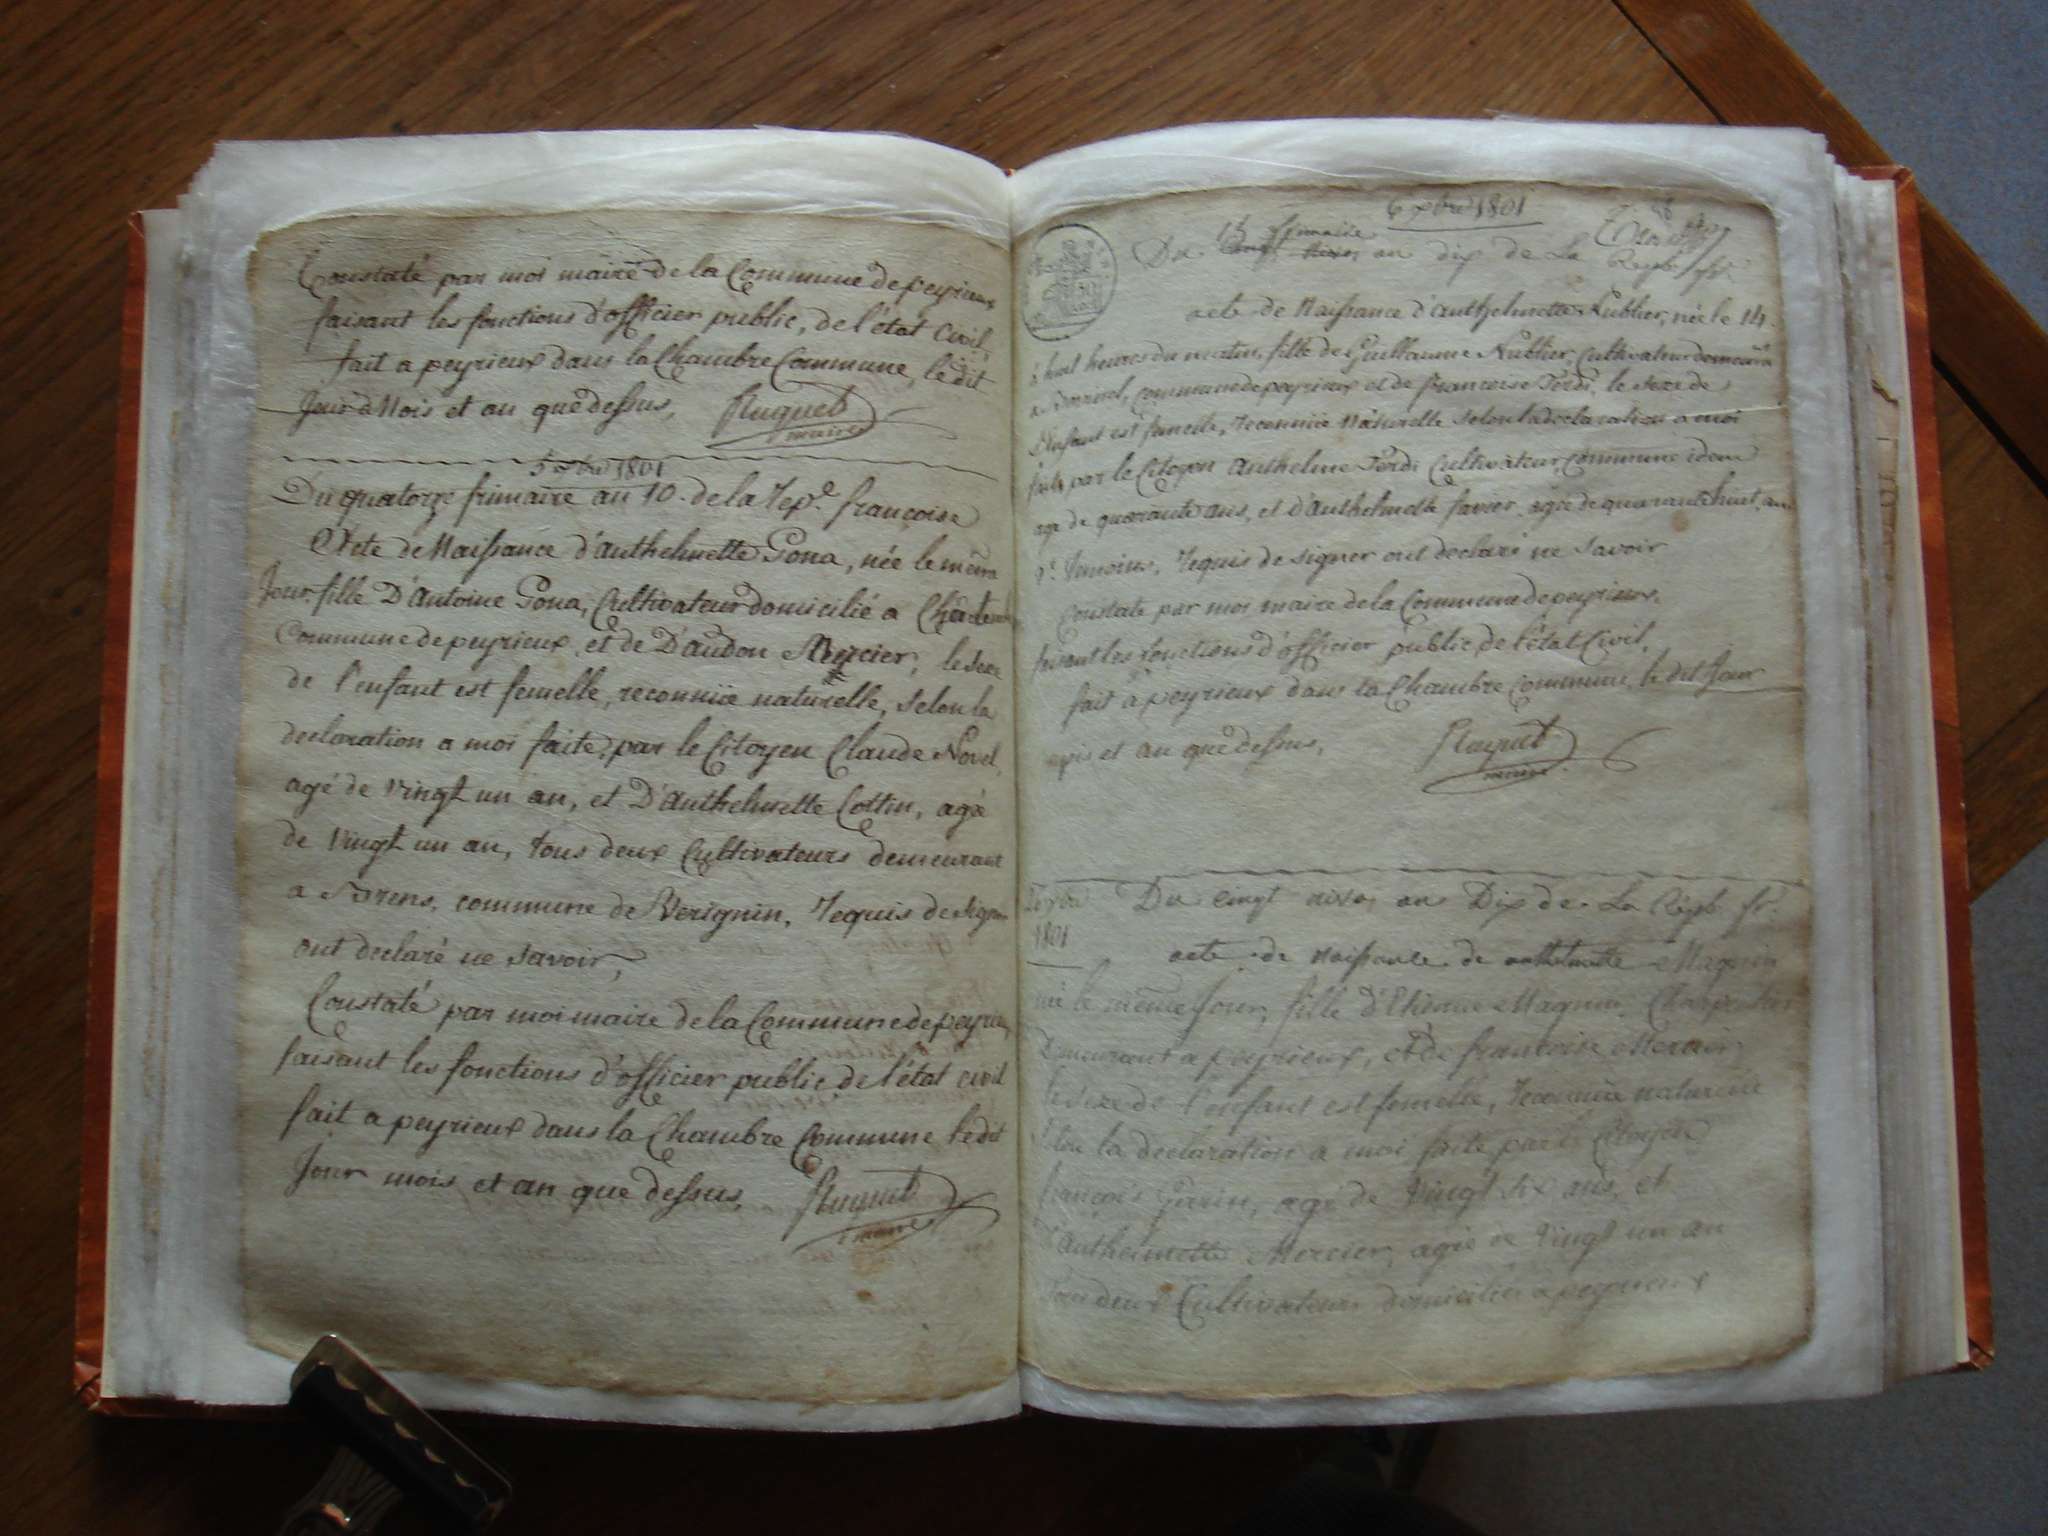 Constaté par moi maire de la Commune de peyrieux
faisant les fonctions d'officier public, de l'état Civil,
fait a peyrieux dans la Chambre Commune, le dit
Jour Mois et an que dessus,
maire
5 xbre 1801
Du quatorze frimaire an 10. de la Rep.e françoise
Acte de Naissance d'anthelmette Gona, née le même
Jour, fille D'Antoine Gona, Cultivateur domicilié a
Commune de peyrieux, et de D'audon Mercier, le sexe
de l'enfant est femelle, reconnüe naturelle, selon la
declaration a moi faite, par le Citoyen Claude Novel,
agé de vingt un an, et D'Anthelmette Cottin, agée
de vingt un an, tous deux Cultivateurs demeurant
a Brens, commune de Verignin, Requis de signer
ont declaré ne savoir,
Constaté par moi maire de la Commune de peyrieux,
faisant les fonctions d'officier public de l'état civil
fait a peyrieux dans la Chambre Commune le dit
Jour mois et an que dessus,
maire
6 xbre 1801
Du 15 frimaire an dix de La Repb. fr.
acte de Naissance d'Anthelmette Nublier, née le 14.
à huit heures du matin, fille de Guillaume Nublier, Cultivateur demeurant
commune de peyrieux et de francoise Ferdi, le sexe de
L'enfant est femelle, reconnüe Naturelle selon la declaration a moi
faite par le Citoyen Anthelme Ferdi Cultivateur, Commune idem
agé de quarante ans, et d'Anthelmette favier, agée de quarante huit, ans
Temoins, Requis de signer ont declaré ne savoir
Constaté par moi maire de la Commune de peyrieux,
faisant les fonctions d'officier public, de l'état Civil,
fait a peyrieux dans la Chambre Commune, le dit Jour
mois et an que dessus,
maire
1801
Du cinq nivos an Dix de La Répb. fr.
acte de Naissance de anthelmette Magnin
né le même Jour, fille d'Etienne Magnin, Charpentier
Demeurant a peyrieux, et de francoise Mercier,
le sexe de l'enfant est femelle, reconnüe naturelle
selon la declaration a moi faite par le Citoyen
françois Garin, agé de vingt six ans, et
D'anthelmette Mercier, agée de vingt un an
Tous deux Cultivateurs domiciliés a peyrieux